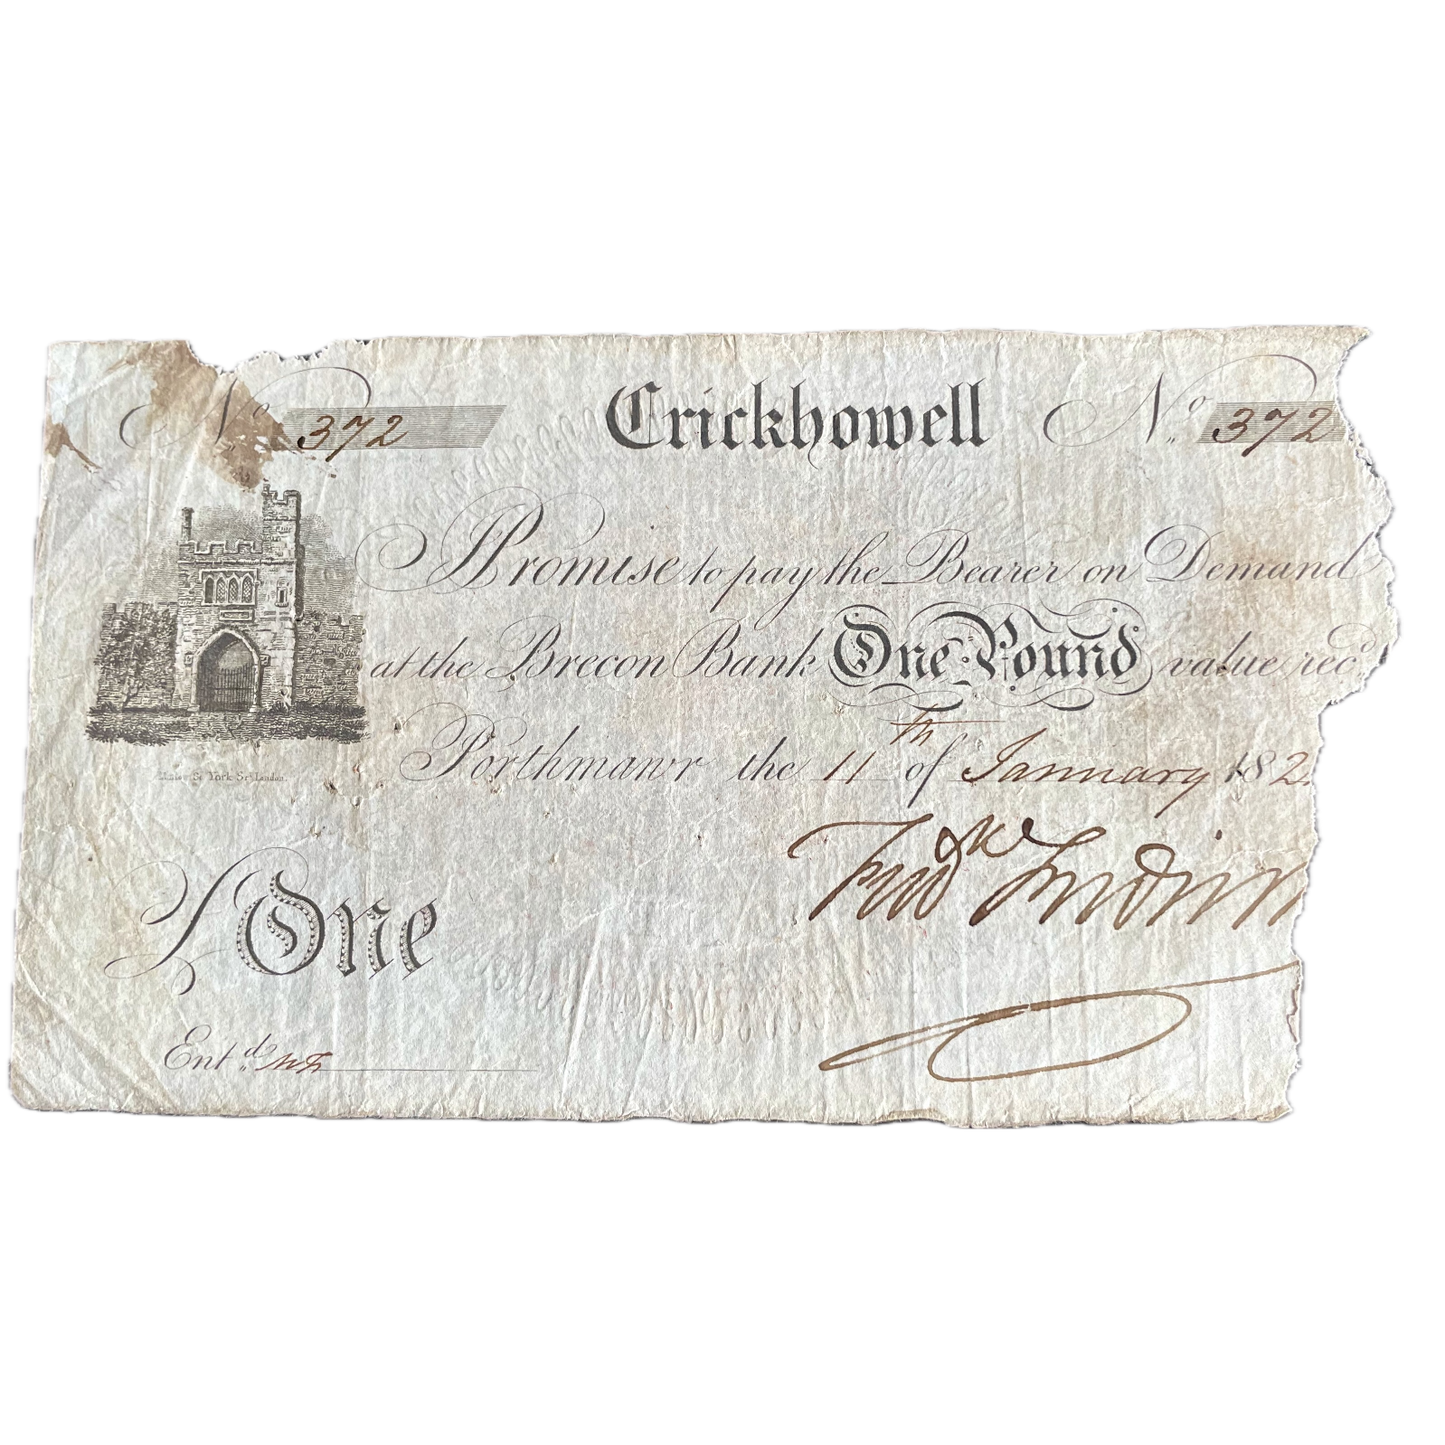 No 372 Crickhowell No 372
I Promise to pay the Bearer on Demand
at the Brecon Bank One Pound value recd
Porthmawr the 11th of January 182
£ One
Entd
York St London.